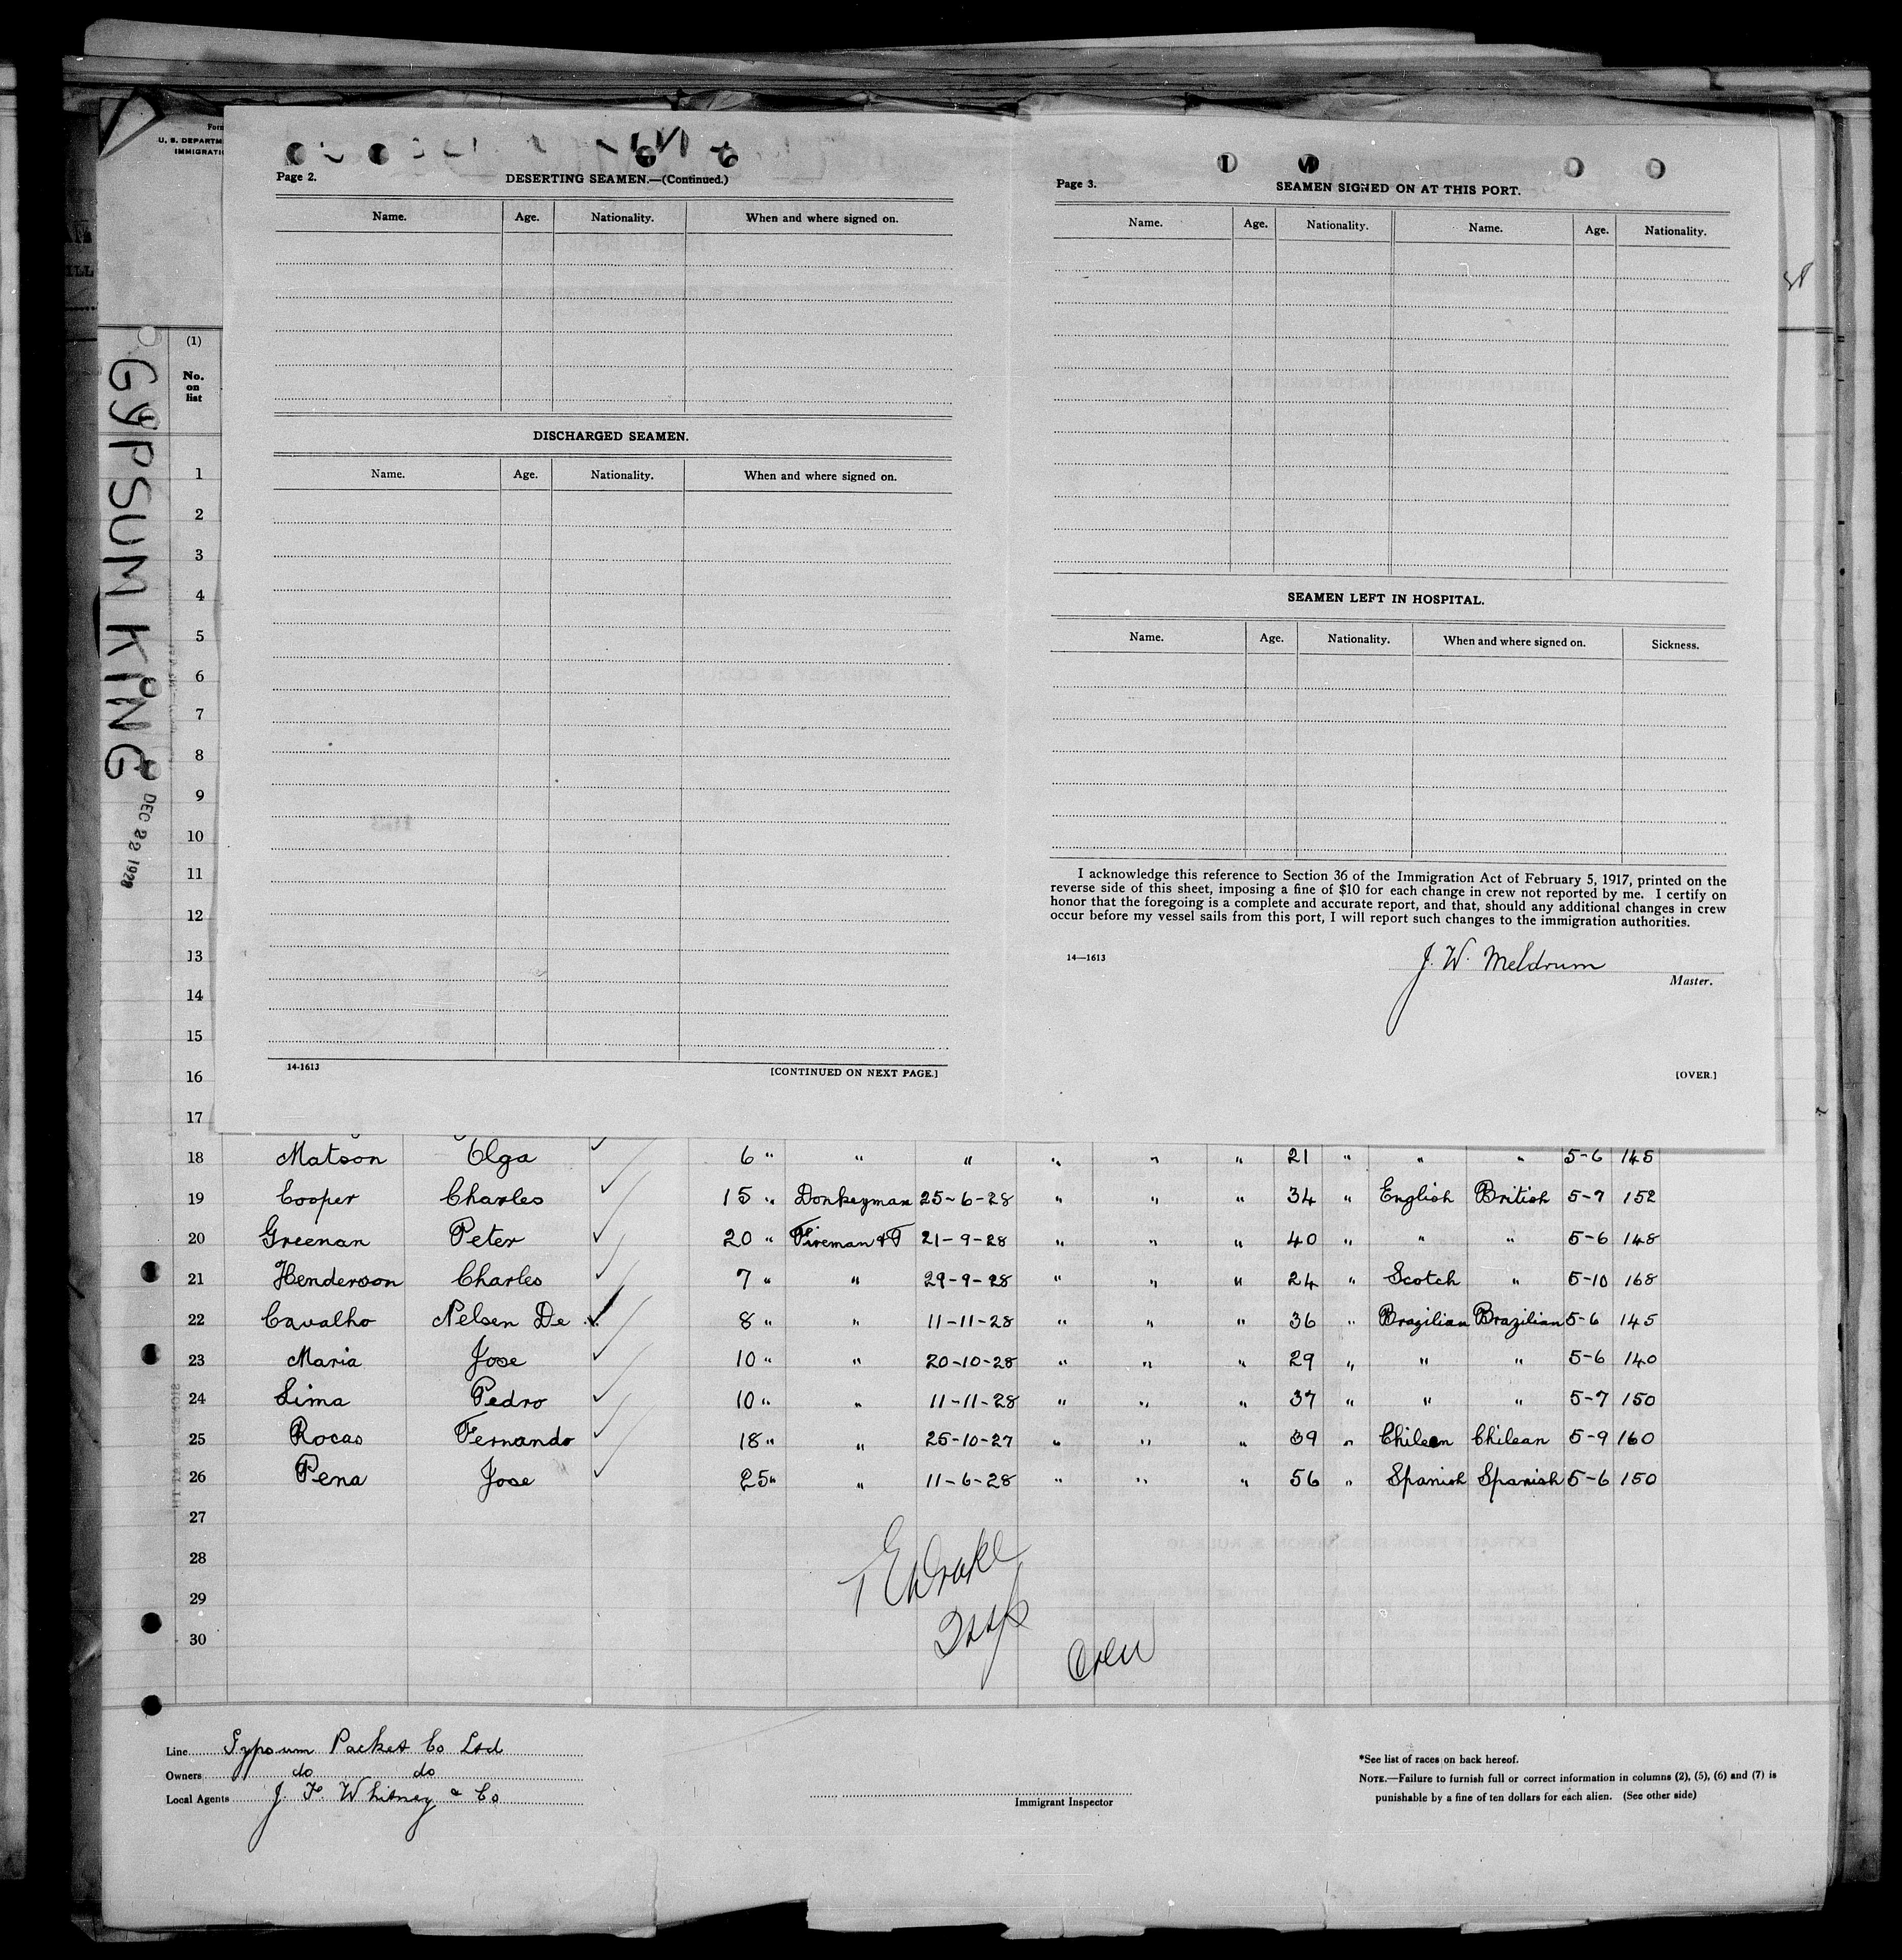 Form
U. S. DEPARTM
IMMIGRATI
Page 2.
DESERTING SEAMEN.—(Continued.)
Name. Age. Nationality. When and where signed on.
DISCHARGED SEAMEN.
Name. Age. Nationality. When and where signed on.
14-1613
[CONTINUED ON NEXT PAGE.]
Page 3.
SEAMEN SIGNED ON AT THIS PORT.
Name. Age. Nationality. Name. Age. Nationality.
SEAMEN LEFT IN HOSPITAL.
Name. Age. Nationality. When and where signed on. Sickness.
I acknowledge this reference to Section 36 of the Immigration Act of February 5, 1917, printed on the
reverse side of this sheet, imposing a fine of $10 for each change in crew not reported by me. I certify on
honor that the foregoing is a complete and accurate report, and that, should any additional changes in crew
occur before my vessel sails from this port, I will report such changes to the immigration authorities.
14—1613
J. W. Meldrum
Master.
[OVER.]
GYPSUM KING
DEC 22 1928
(1)
No.
on
list
1
2
3
4
5
6
7
8
9
10
11
12
13
14
15
16
17
18 Matson Olga ✓ 6 " " " " " " 21 " " " 5-6 145
19 Cooper Charles ✓ 15 " Donkeyman 25-6-28 " " " 34 " English British 5-7 152
20 Greenan Peter ✓ 20 " Fireman & T 21-9-28 " " " 40 " " " 5-6 148
21 Henderson Charles ✓ 7 " " 29-9-28 " " " 24 " Scotch " 5-10 168
22 Cavalho Nelsen De ✓ 8 " " 11-11-28 " " " 36 " Brazilian Brazilian 5-6 145
23 Maria Jose ✓ 10 " " 20-10-28 " " " 29 " " " 5-6 140
24 Lima Pedro ✓ 10 " " 11-11-28 " " " 37 " " " 5-7 150
25 Rocas Fernando ✓ 18 " " 25-10-27 " " " 39 " Chilean Chilean 5-9 160
26 Pena Jose ✓ 25 " " 11-6-28 " " " 56 " Spanish Spanish 5-6 150
27
28
29
30
Drake
Insp
Line Gypsum Packet Co Ltd
Owners do do
Local Agents J. F. Whitney & Co
Immigrant Inspector
*See list of races on back hereof.
NOTE.—Failure to furnish full or correct information in columns (2), (5), (6) and (7) is
punishable by a fine of ten dollars for each alien. (See other side)